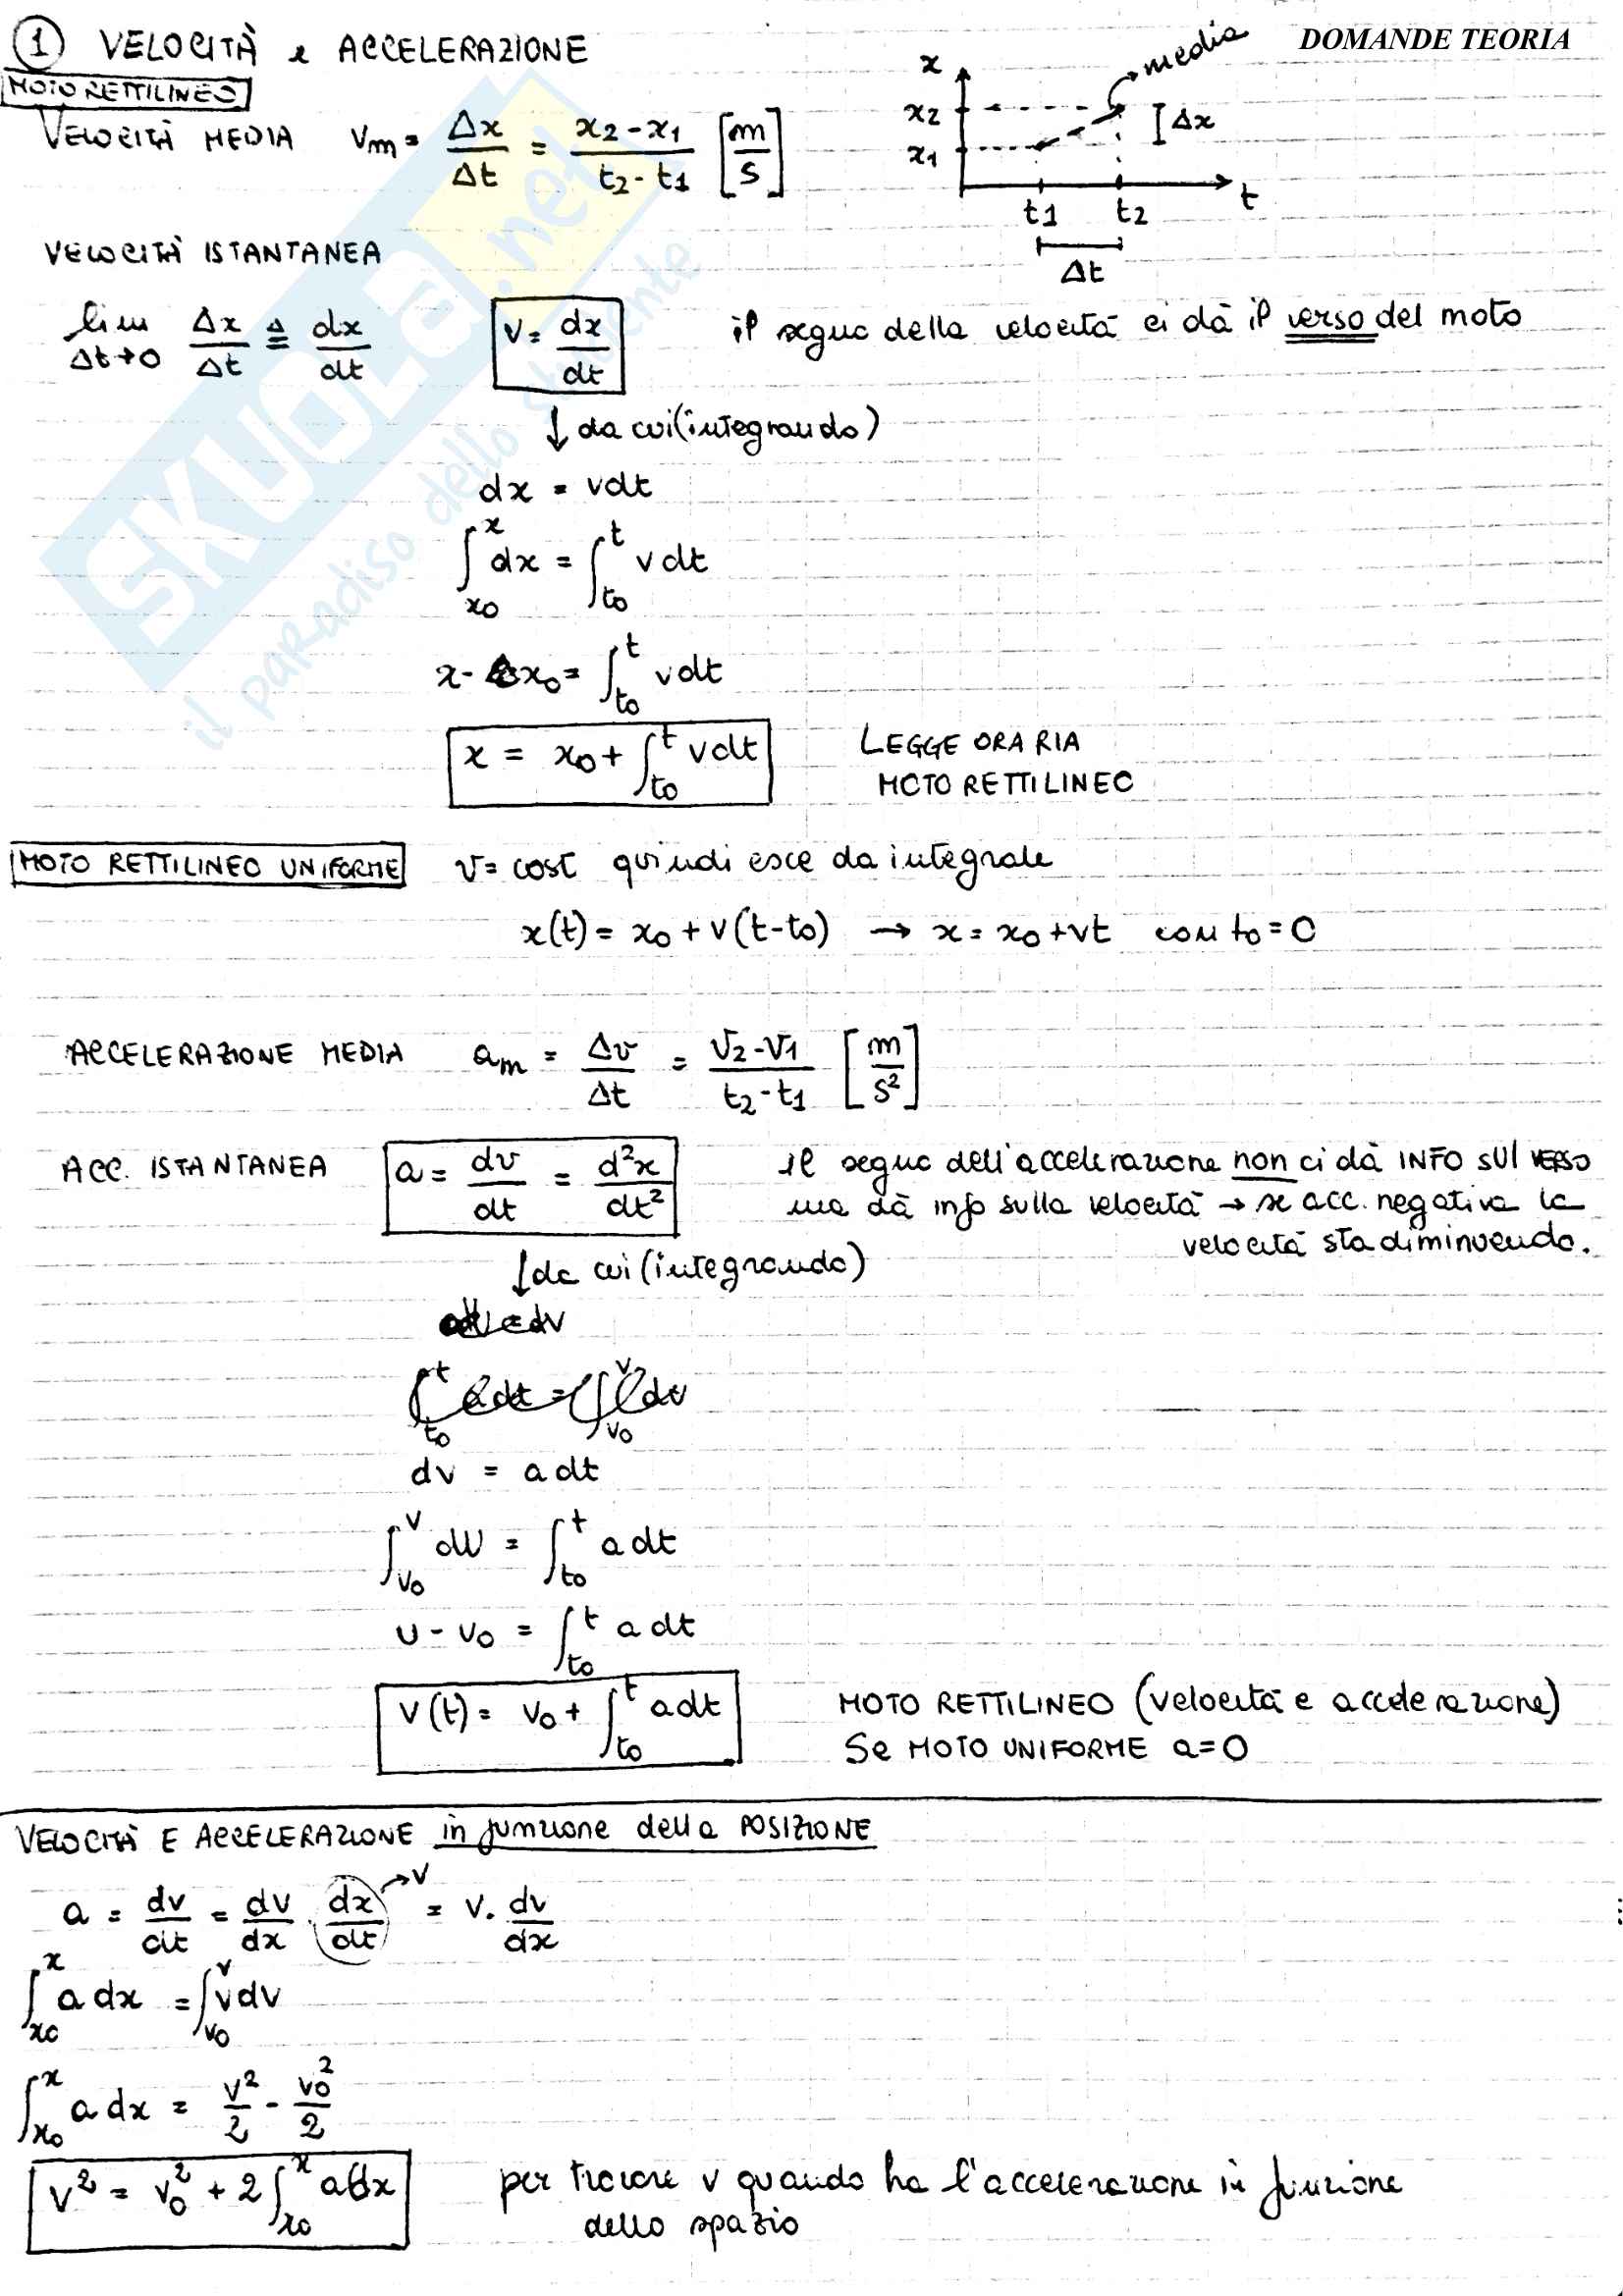 DOMANDE TEORIA
1 VELOCITÀ e ACCELERAZIONE
MOTO RETTILINEO
VELOCITÀ MEDIA vm = Δx/Δt = (x2-x1)/(t2-t1) [m/s]
x
media
x2
Δx
x1
t
t1 t2
Δt
VELOCITÀ ISTANTANEA
lim Δt→0 Δx/Δt ≜ dx/dt v = dx/dt il segno della velocità ci dà il verso del moto
↓ da cui (integrando)
dx = vdt
∫_{x0}^{x} dx = ∫_{t0}^{t} v dt
x - x0 = ∫_{t0}^{t} v dt
x = x0 + ∫_{t0}^{t} v dt LEGGE ORARIA
MOTO RETTILINEO
MOTO RETTILINEO UNIFORME v = cost quindi esce da integrale
x(t) = x0 + v(t-t0) → x = x0+vt con t0 = 0
ACCELERAZIONE MEDIA am = Δv/Δt = (v2-v1)/(t2-t1) [m/s²]
ACC. ISTANTANEA a = dv/dt = d²x/dt² Il segno dell'accelerazione non ci dà INFO SUl VERSO
ma dà info sulla velocità → se acc. negativa la
velocità sta diminuendo.
↓ da cui (integrando)
dv = a dt
∫_{v0}^{v} dv = ∫_{t0}^{t} a dt
v - v0 = ∫_{t0}^{t} a dt
v(t) = v0 + ∫_{t0}^{t} a dt MOTO RETTILINEO (velocità e accelerazione)
Se MOTO UNIFORME a=0
VELOCITÀ E ACCELERAZIONE in funzione della POSIZIONE
a = dv/dt = dv/dx · dx/dt → v = v · dv/dx
∫_{x0}^{x} a dx = ∫_{v0}^{v} v dv
∫_{x0}^{x} a dx = v²/2 - v0²/2
v² = v0² + 2∫_{x0}^{x} a dx per trovare v quando ha l'accelerazione in funzione
dello spazio
SKUOLA.net
il paradiso dello studente